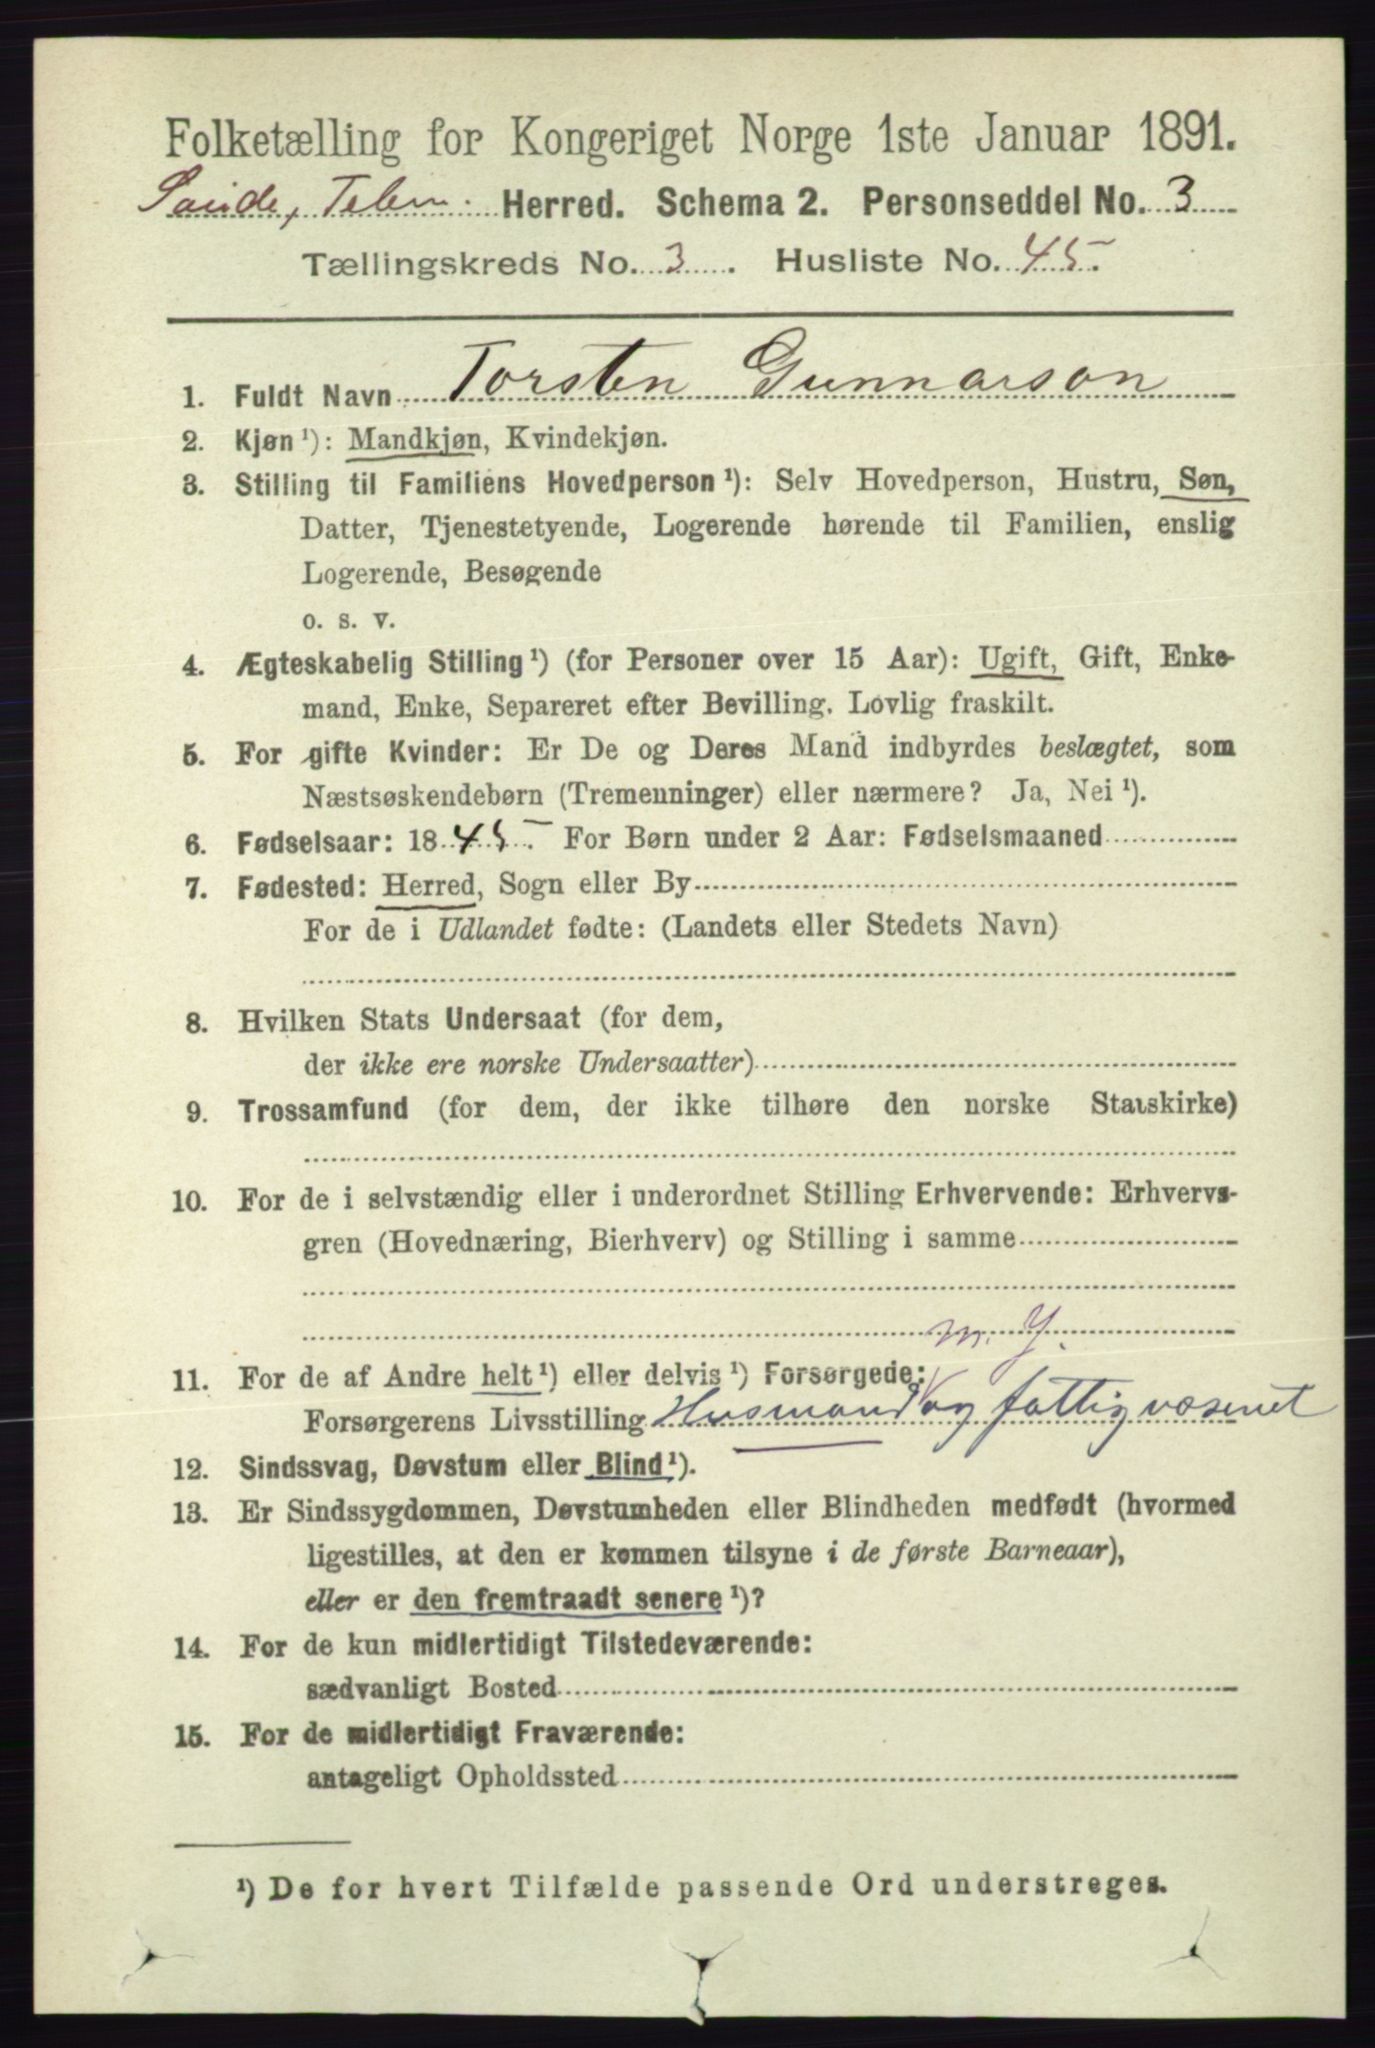 Folketælling for Kongeriget Norge 1ste Januar 1891.
Telem. Herred. Schema 2. Personseddel No. 3
Tællingskreds No. 3. Husliste No. 45.
1. Fuldt Navn Torsten Gunnarson
2. Kjøn ¹): Mandkjøn, Kvindekjøn.
3. Stilling til Familiens Hovedperson ¹): Selv Hovedperson, Hustru, Søn,
Datter, Tjenestetyende, Logerende hørende til Familien, enslig
Logerende, Besøgende
o. s. v.
4. Ægteskabelig Stilling ¹) (for Personer over 15 Aar): Ugift, Gift, Enke-
mand, Enke, Separeret efter Bevilling. Lovlig fraskilt.
5. For gifte Kvinder: Er De og Deres Mand indbyrdes beslægtet, som
Næstsøskendebørn (Tremenninger) eller nærmere? Ja, Nei ¹).
6. Fødselsaar: 1845. For Børn under 2 Aar: Fødselsmaaned
7. Fødested: Herred, Sogn eller By
For de i Udlandet fødte: (Landets eller Stedets Navn)
8. Hvilken Stats Undersaat (for dem,
der ikke ere norske Undersaatter)
9. Trossamfund (for dem, der ikke tilhøre den norske Statskirke)
10. For de i selvstændig eller i underordnet Stilling Erhvervende: Erhvervs-
gren (Hovednæring, Bierhverv) og Stilling i samme
m. J.
11. For de af Andre helt ¹) eller delvis ¹) Forsørgede:
Forsørgerens Livsstilling Husmand og fattigvæsenet
12. Sindssvag, Døvstum eller Blind ¹).
13. Er Sindssygdommen, Døvstumheden eller Blindheden medfødt (hvormed
ligestilles, at den er kommen tilsyne i de første Barneaar),
eller er den fremtraadt senere ¹)?
14. For de kun midlertidigt Tilstedeværende:
sædvanligt Bosted
15. For de midlertidigt Fraværende:
antageligt Opholdssted
¹) De for hvert Tilfælde passende Ord understreges.